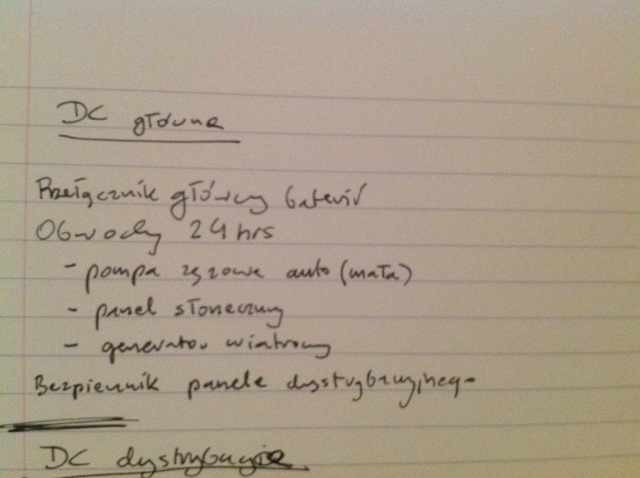 DC główne
Przełącznik główny baterii
Obwody 24hrs
- pompa zęzowa auto (mała)
- panel słoneczny
- generator wiatrowy
Bezpiecznik panela dystrybucyjnego
DC dystrybucyjne